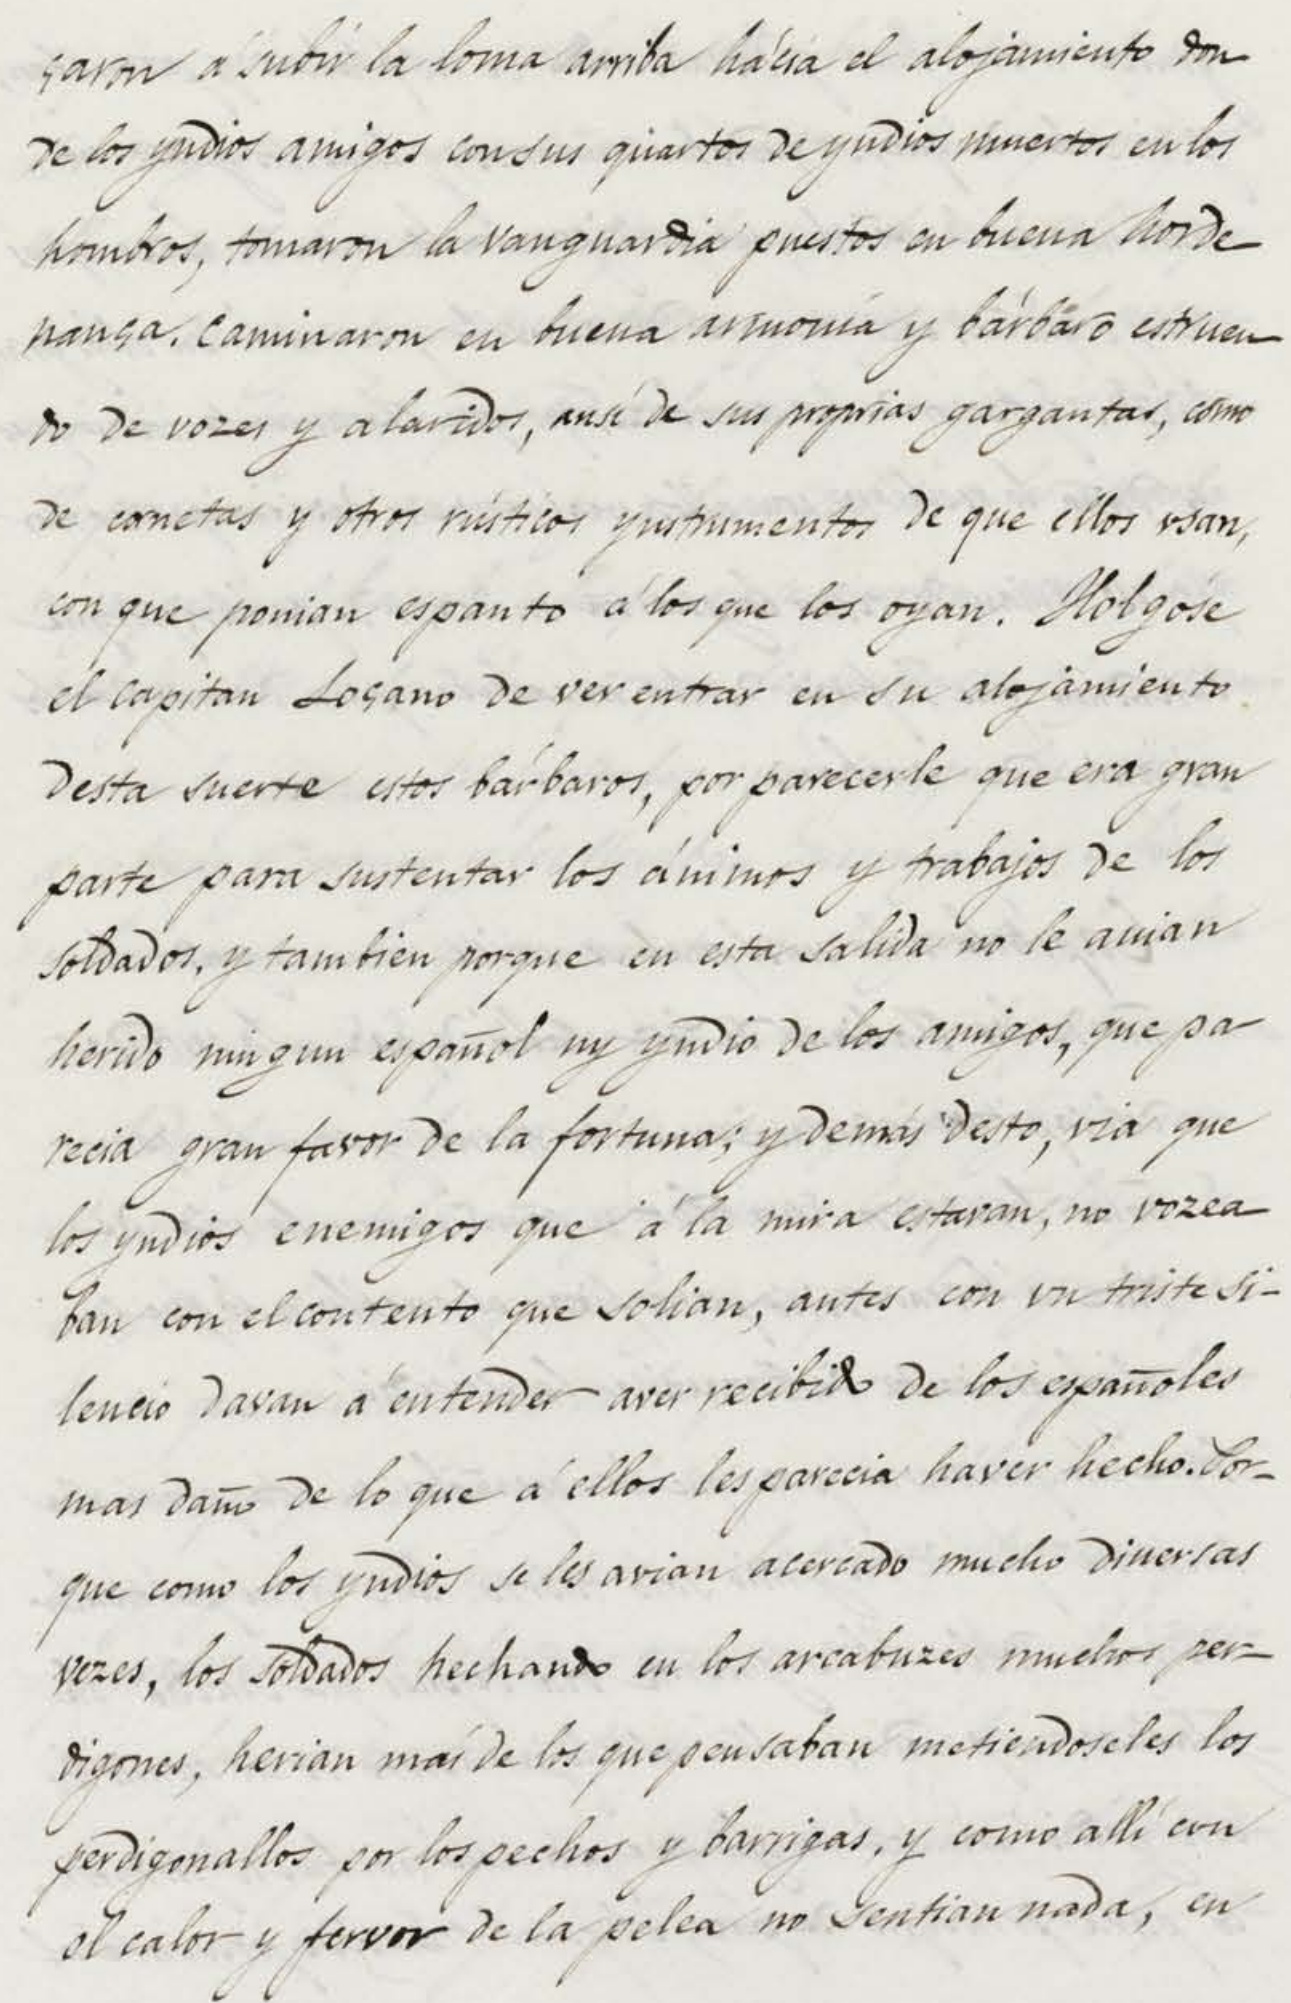 çaron á subir la loma arriba hácia el alojamiento don
de los yndios amigos con sus quartos de yndios muertos en los
hombros, tomaron la vanguardia puestos en buena horde
nança. Caminaron en buena armonía y bárbaro estruen
do de vozes y alaridos, ansí de sus proprias gargantas, como
de cornetas y otros rústicos ynstrumentos de que ellos vsan,
con que ponian espanto á los que los oyan. Holgóse
el capitan Loçano de ver entrar en su alojamiento
desta suerte estos bárbaros, por parecerle que era gran
parte para sustentar los ánimos y trabajos de los
soldados, y tambien porque en esta salida no le auian
herido ningun español ny yndio de los amigos, que pa-
recia gran favor de la fortuna; y demás desto, via que
los yndios enemigos que á la mira estavan, no vozea
ban con el contento que solian, antes con vn triste si-
lencio davan á entender aver recibido de los españoles
mas daño de lo que á ellos les parecia haver hecho. Por-
que como los yndios se les avian acercado mucho diuersas
vezes, los soldados hechando en los arcabuzes muchos per-
digones, herian mas de los que pensaban metiendoseles los
perdigonallos por los pechos y barrigas, y como allí con
el calor y fervor de la pelea no sentian nada, en